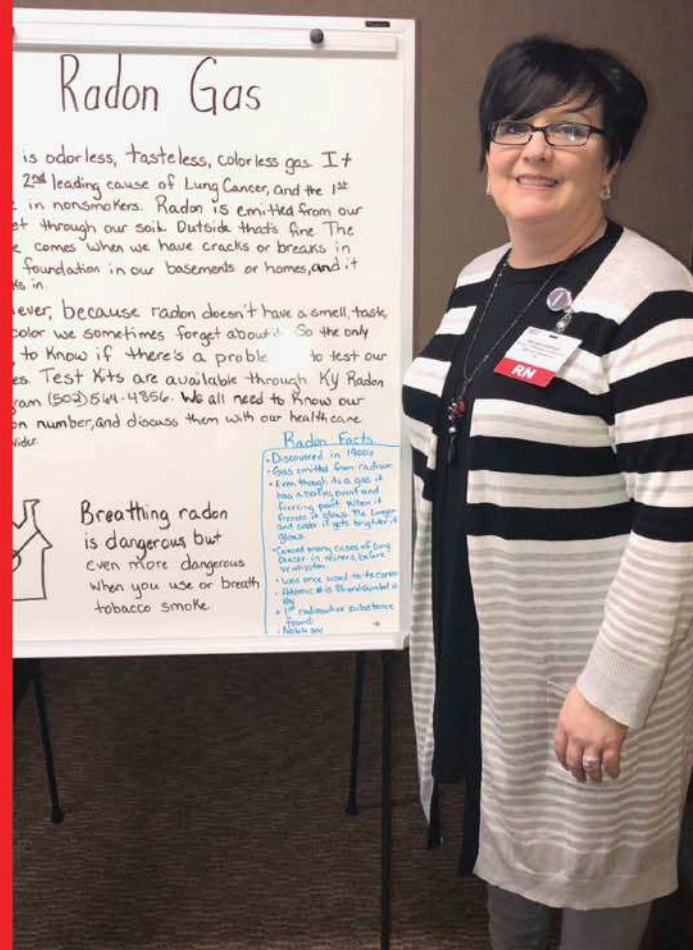 Radon Gas
is odorless, tasteless, colorless gas. It
2nd leading cause of Lung Cancer, and the 1st
in nonsmokers. Radon is emitted from our
et through our soil. Outside that's fine The
e comes when we have cracks or breaks in
foundation in our basements or homes, and it
ks in.
ever, because radon doesn't have a smell, taste,
color we sometimes forget about it. So the only
to know if there's a proble to test our
es. Test Kits are available through Ky Radon
ram (502)564-4856. We all need to know our
on number, and discuss them with our healthcare
vider.
Breathing radon
is dangerous but
even more dangerous
when you use or breath
tobacco smoke
Radon Facts
• Discovered in 1900s
• Gas emitted from radium
• Even though its a gas it
has a boiling point and
freezing point. When it
freezes it glows. The longer
and colder it gets brighter it
glows.
• Caused many cases of lung
cancer in miners before
ventilation
• Was once used to
• Atomic # is 86 and symbol is
• 1st radioactive substance
found
• Noble gas
RN